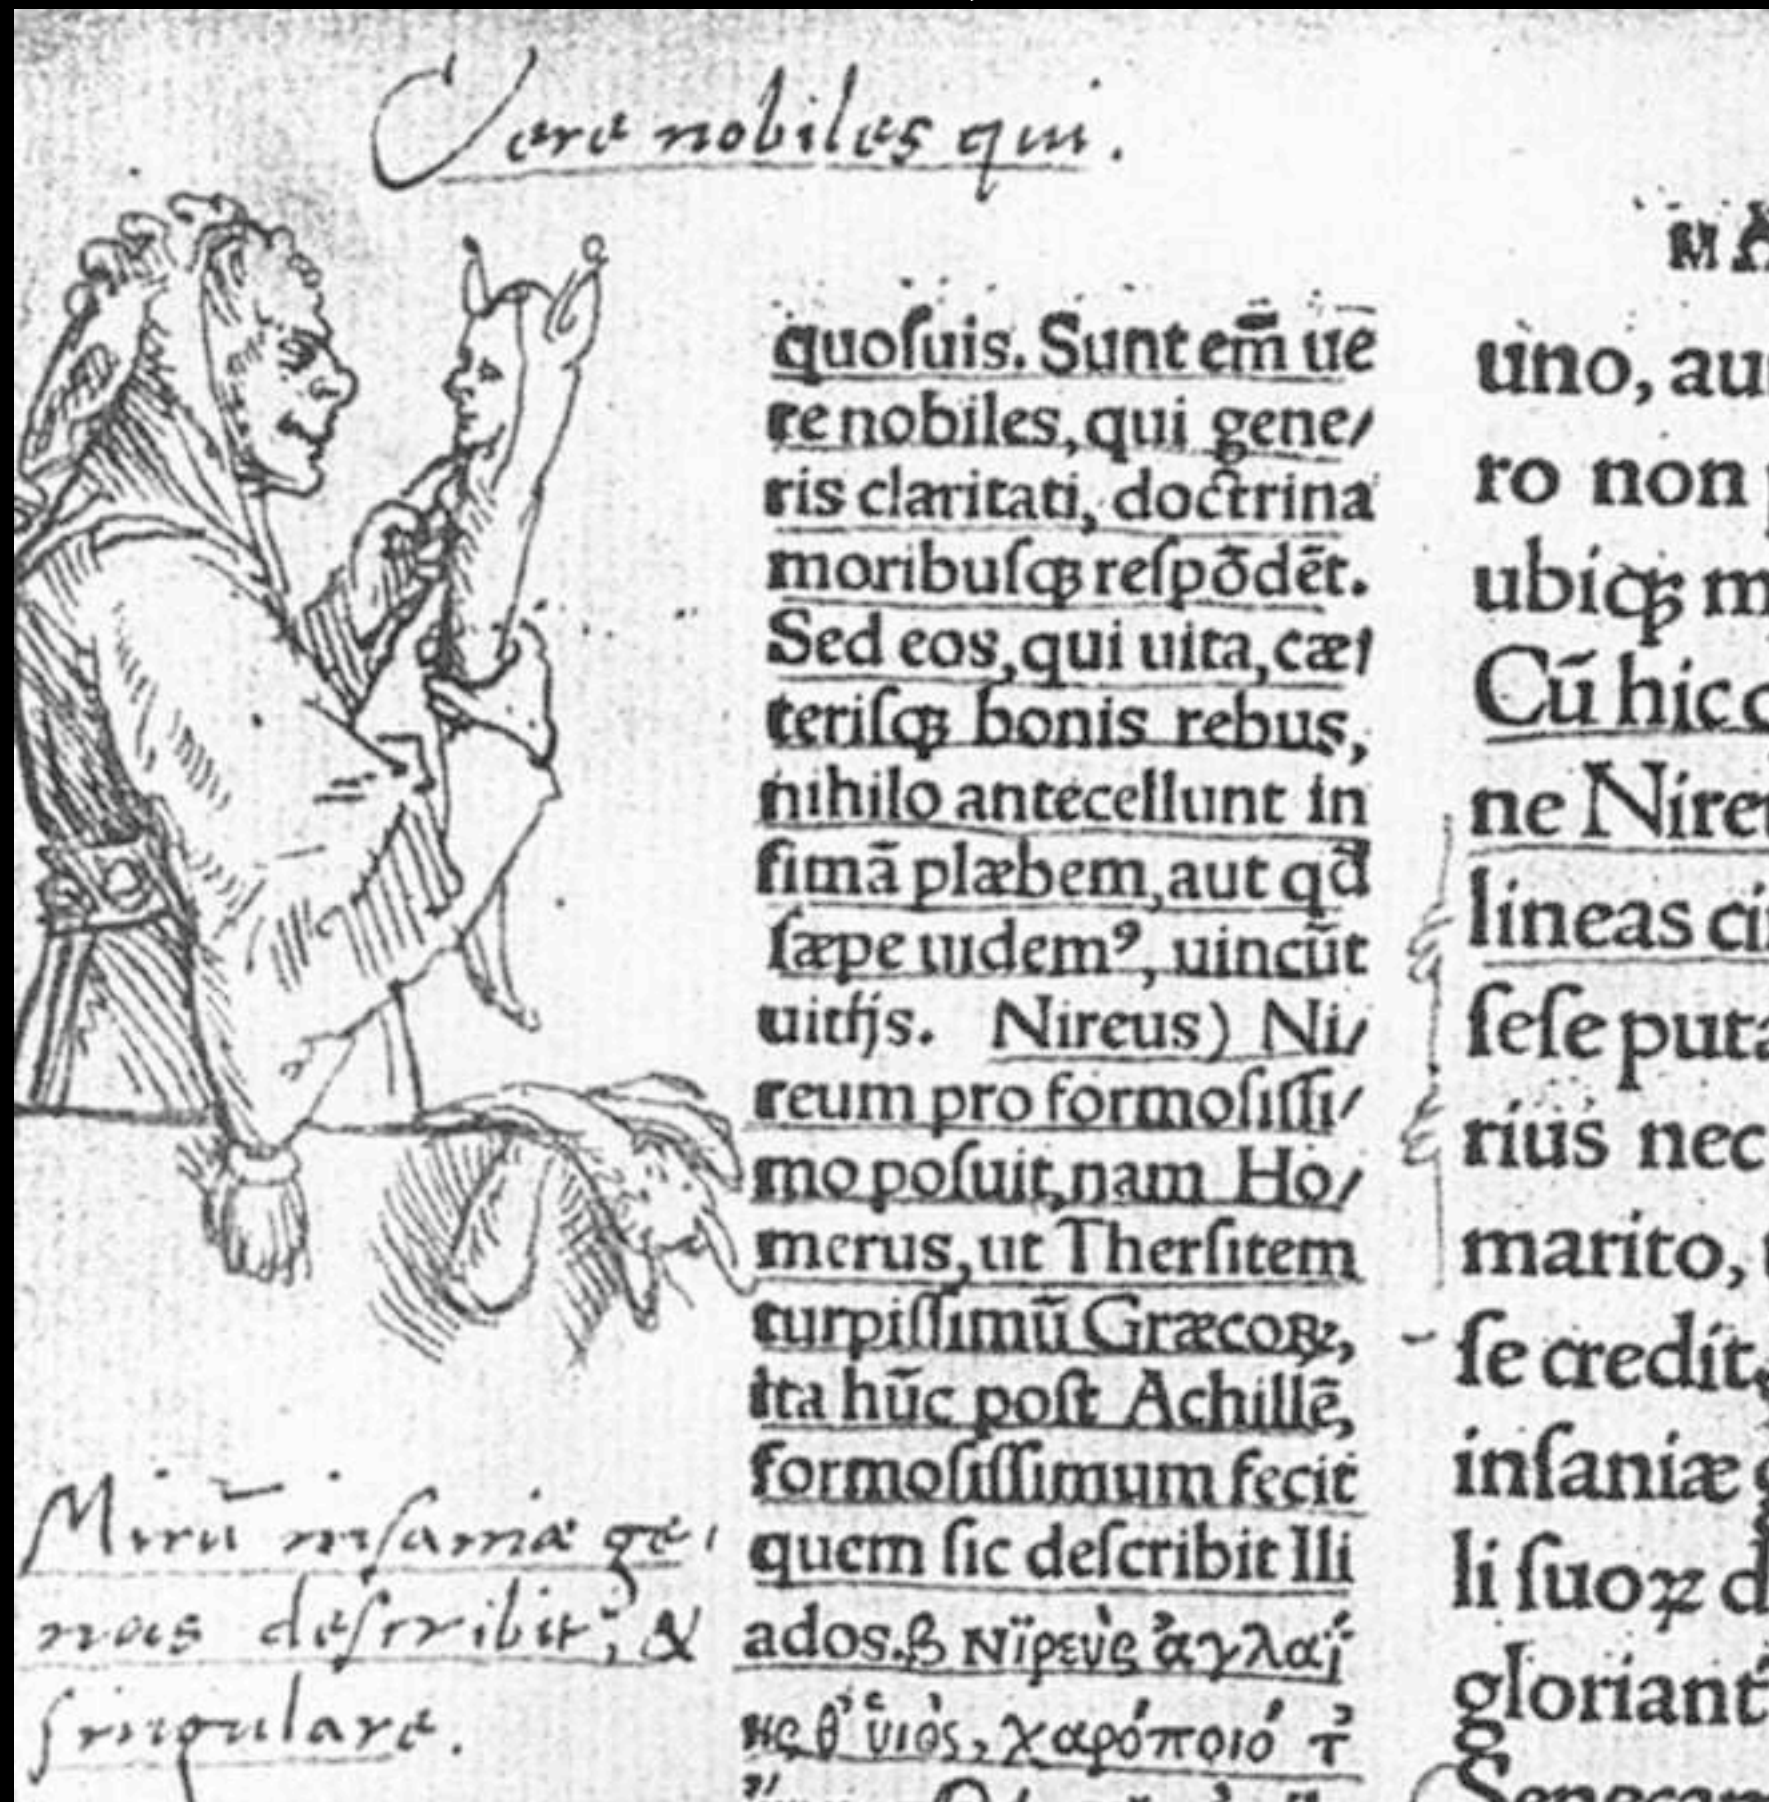 Vere nobiles qui.
MA
quoſuis. Sunt em̄ ue
re nobiles, qui gene/
ris claritati, doctrina
moribuſqꝫ reſpōdēt.
Sed eos, qui uita, cæ/
teriſqꝫ bonis rebus,
nihilo antecellunt in
fimā plæbem, aut qđ
ſæpe uidemꝰ, uincūt
uitijs. Nireus) Ni/
reum pro formoſiſſi/
mo poſuit, nam Ho/
merus, ut Therſitem
turpiſſimū Græcoꝝ,
ita hūc poſt Achillē,
formoſiſſimum fecit
quem ſic deſcribit Ili
ados.β Νϊρεὺς ἀγλαΐ
ης θ' ὑιὸς, χαρόποιό τ'
Mirū inſaniæ ge/
nus deſcribit, &
ſingulare.
uno, au
ro non
ubiqꝫ m
Cū hic c
ne Nire
lineas ci
ſeſe puta
rius nec
marito,
ſe credit,
inſaniæ g
li ſuoꝝ d
gloriant
Senecam